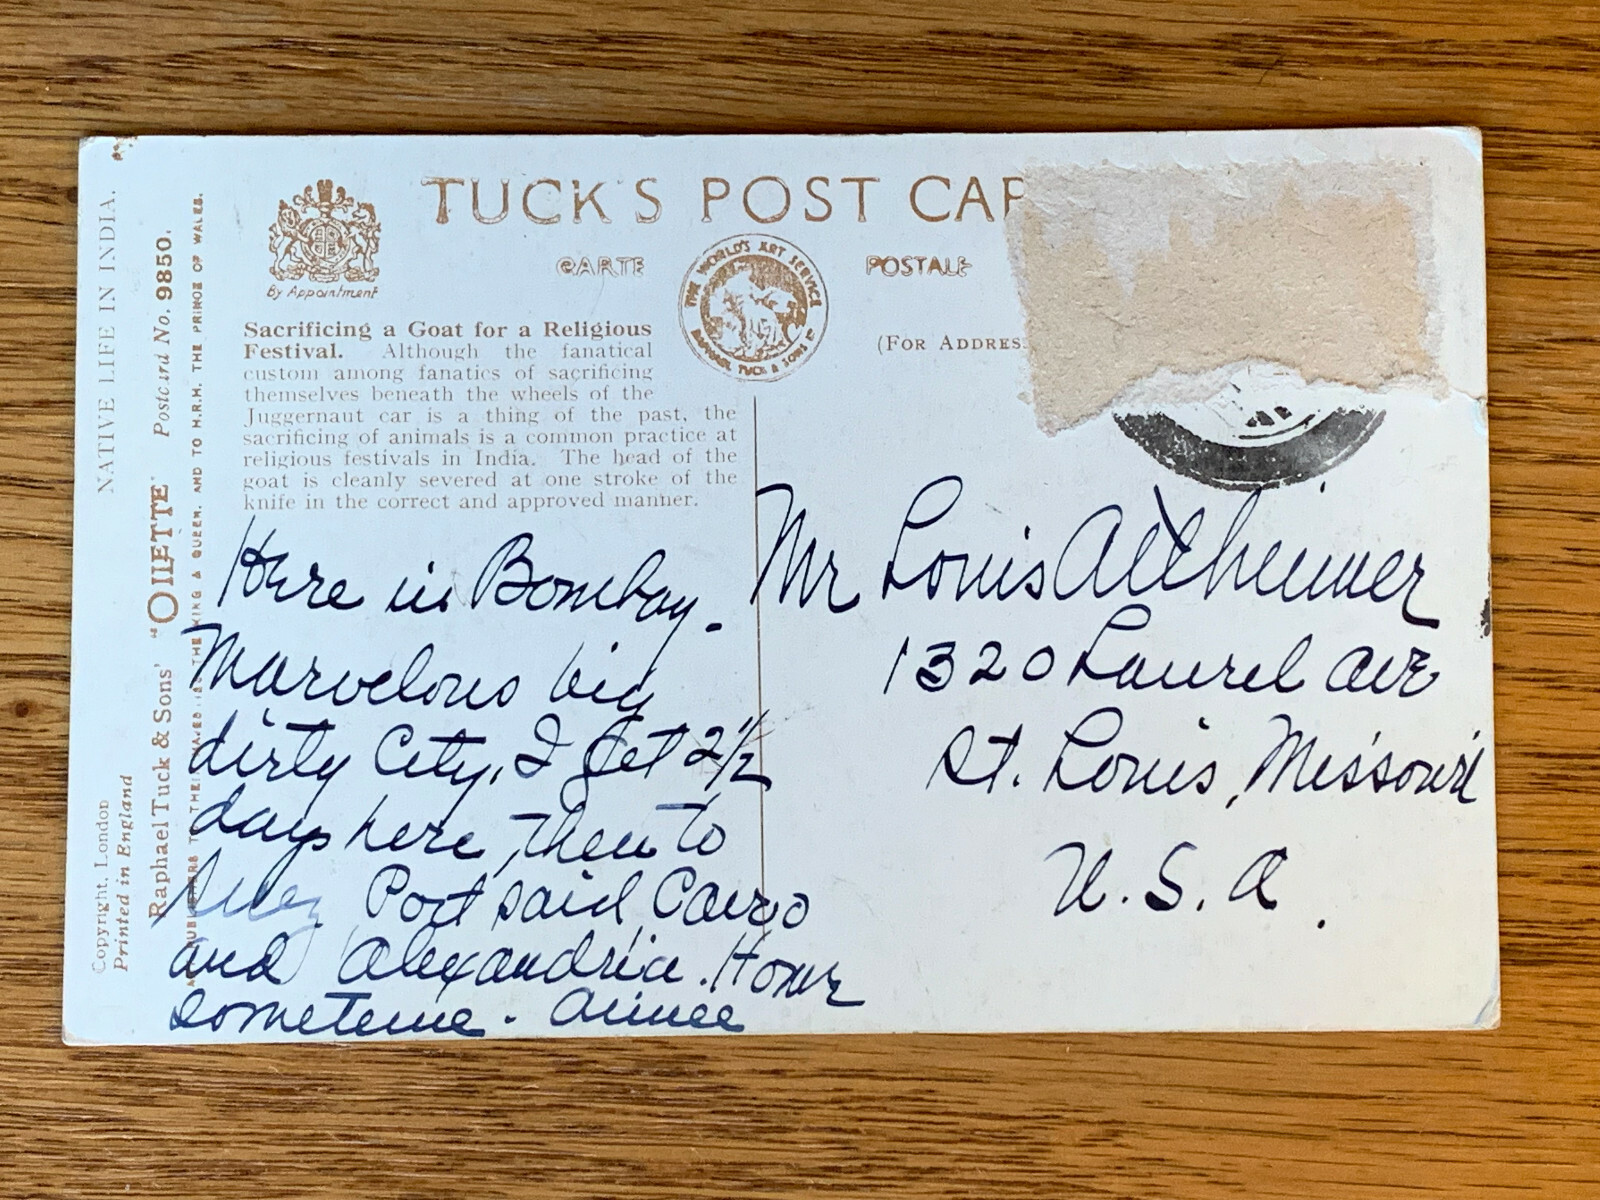 TUCK'S POST CAR
CARTE POSTALE
By Appointment
THE WORLD'S ART SERVICE
RAPHAEL TUCK & SONS LD
(FOR ADDRES
Sacrificing a Goat for a Religious
Festival. Although the fanatical
custom among fanatics of sacrificing
themselves beneath the wheels of the
Juggernaut car is a thing of the past, the
sacrificing of animals is a common practice at
religious festivals in India. The head of the
goat is cleanly severed at one stroke of the
knife in the correct and approved manner.
NATIVE LIFE IN INDIA.
Copyright, London
Printed in England
Raphael Tuck & Sons' "OILETTE" Postcard No. 9850.
THE KING & QUEEN, AND TO H.R.H. THE PRINCE OF WALES.
Here in Bombay.
Marvelous big
dirty City. I get 2½
days here, then to
Suez Port Said, Cairo
and Alexandria. Home
sometime. Aimee
Mr Louis Altheimer
1320 Laurel Ave
St. Louis, Missouri
U.S.A.